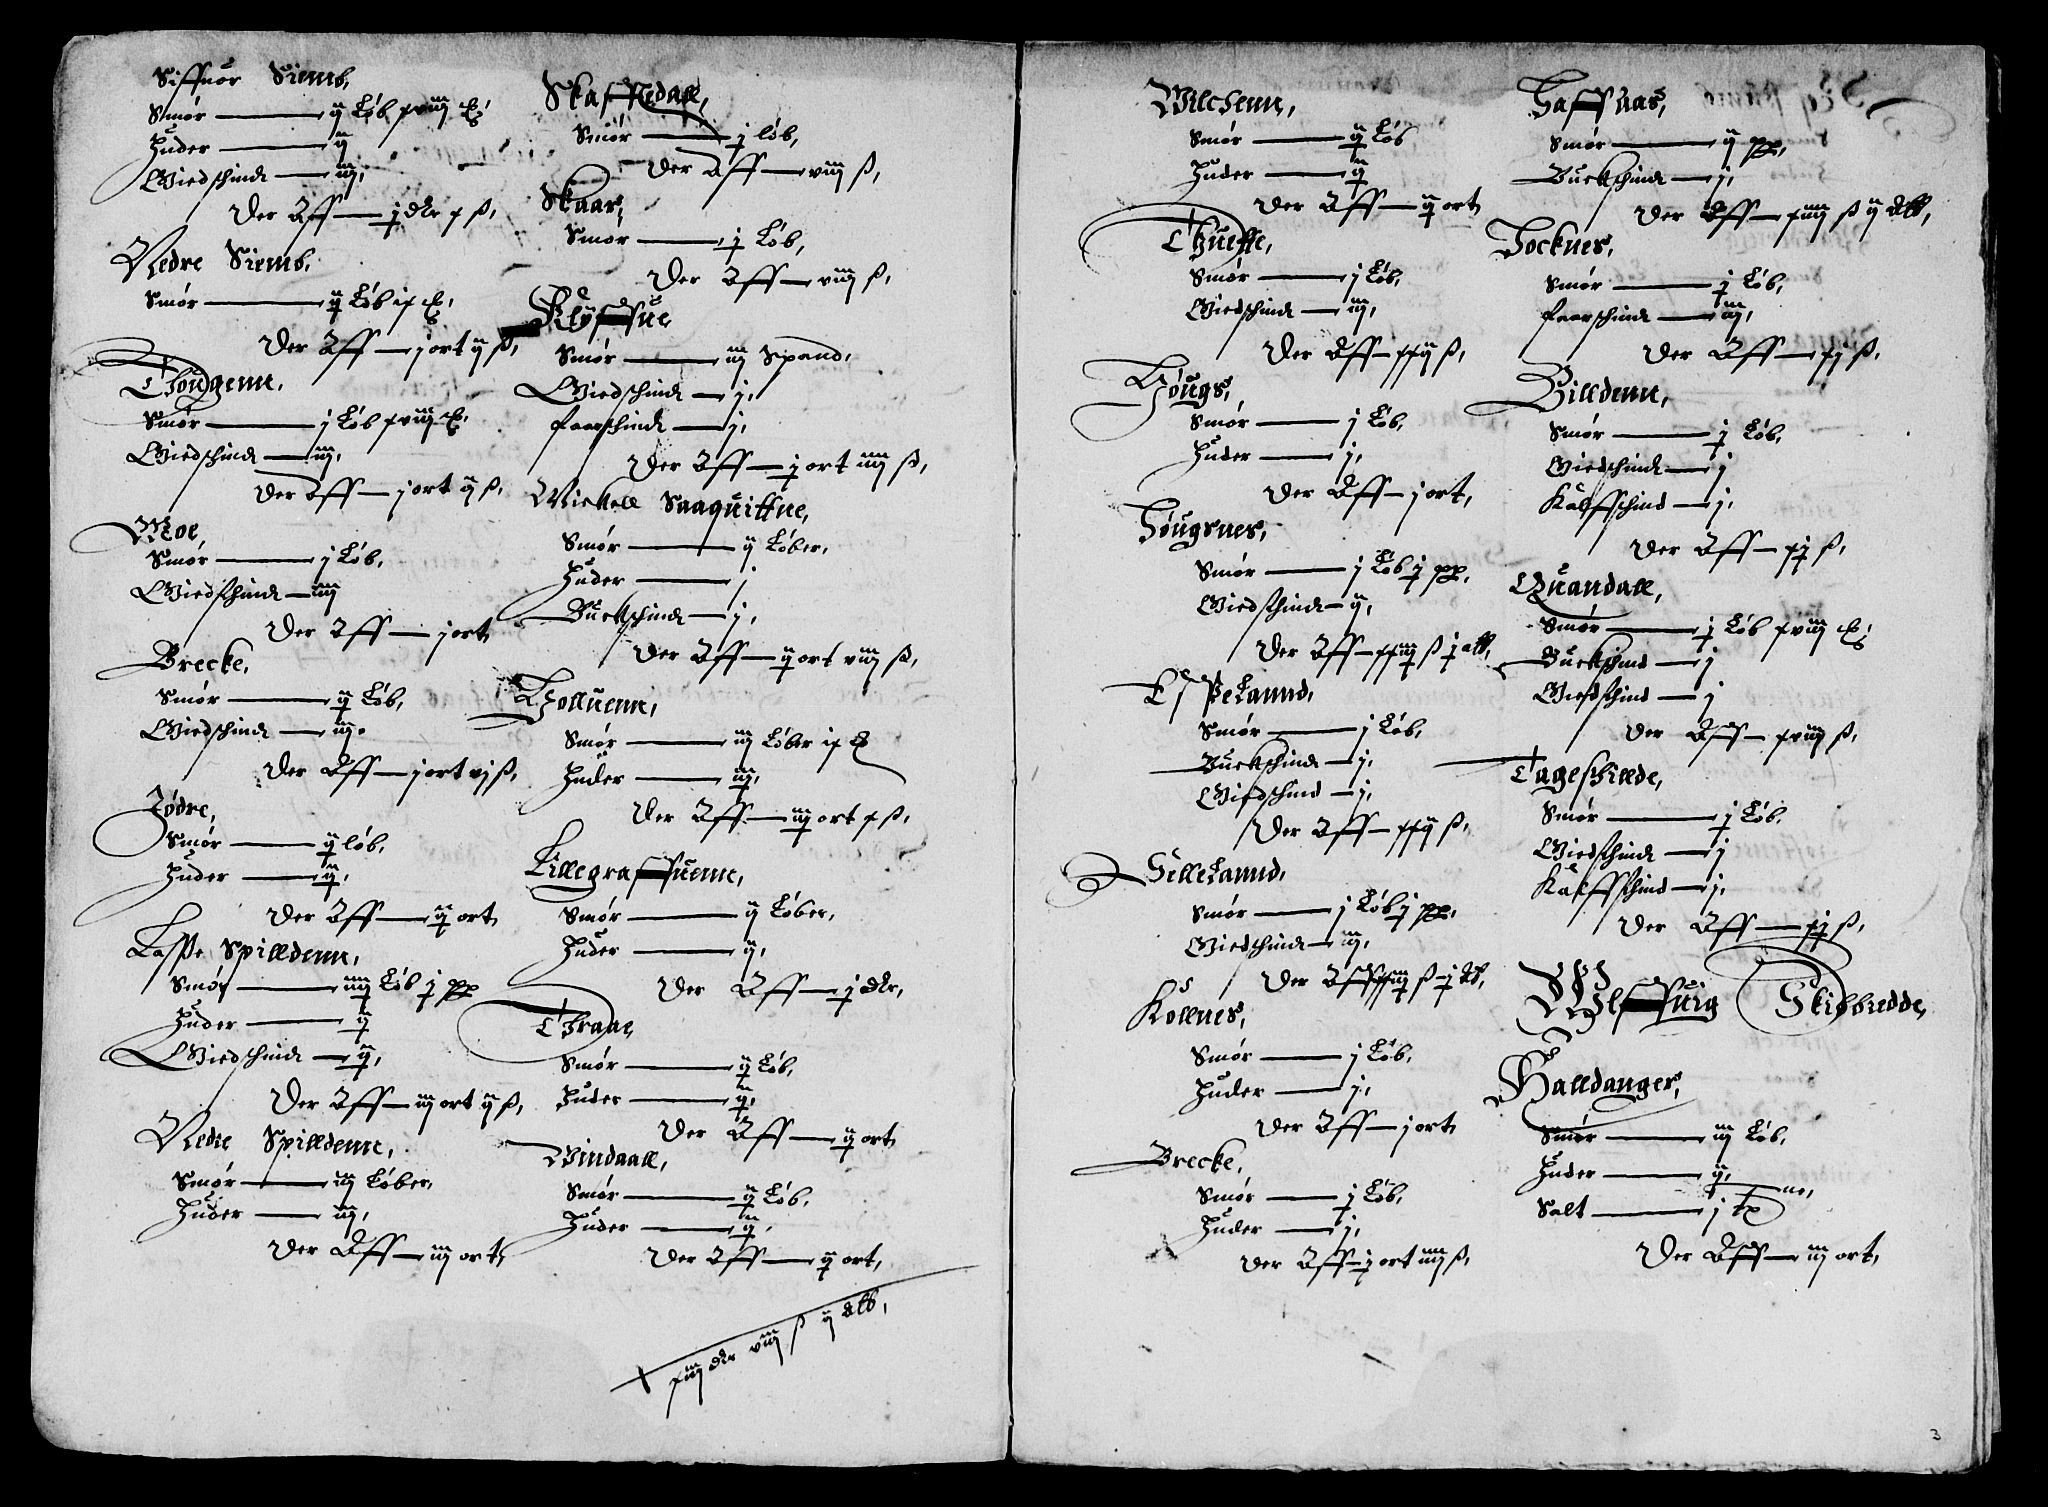 Siffuör Siemb,
Smör — ij Löb xviij
Huder — ij
Giedschind — iij,
Der Aff — j dlr x ß,
Nedre Siemb,
Smör — ij Löb ix
Der Aff — j ort ij ß,
Thougenn,
Smör — j Löb xviij
Giedschind — iij,
Der Aff — j ort ij ß,
Moe,
Smör — j Löb,
Giedschind — iiij
Der Aff — j ort
Brecke,
Smör — ij Löb,
Giedschind — iij.
Der Aff — j ort vj ß,
Jödre,
Smör — ij löb,
Huder — ij,
Der Aff — ij ort
Lasse Spilldenn,
Smör — iiij Löb j pp
Huder — ij
Giedschind — ij,
Der Aff — iij ort ij ß,
Nedre Spilldenne,
Smör — iij Löber,
Huder — iij,
Der Aff — iij ort,
Skaffledall,
Smör — j löb,
Der Aff — viij ß,
Skaar,
Smör — j Löb,
Der Aff — viij ß,
Smör — iij Spand,
Giedschind — j,
faarschind — j,
Der Aff — j ort iiij ß,
Mickell Saaquittne,
Smör — ij Löber,
Huder — j
Buckschind — j,
Der Aff — ij ort viij ß,
Holluenn,
Smör — iij Löber ix
Huder — iij,
Der Aff — iij ort x ß,
Lillegraffuenn,
Smör — ij Löber,
Huder — ij,
Der Aff — j dlr,
Thraae,
Smör — ij Löb,
Huder — ij,
Der Aff — ij ort
Windaall,
Smör — ij Löb,
Huder — ij,
Der Aff — ij ort,
xiij dlr viij ß ij alb,
Wilchenn,
Smör — ij Löb
Huder — ij
Der Aff — ij ort
Thueffte,
Smör — j Löb,
Giedschind — iij,
Der Aff — xxij ß,
Hougs,
Smör — j Löb,
Huder — j,
Der Aff — j ort,
Hougsnes,
Smör — j Löb j pp,
Giedschind — ij,
Der Aff — xxiij ß j alb,
Espelannd,
Smör — j Löb,
Buckschind — j,
Giedschind — j,
Der Aff — xxij ß,
Hellelannd,
Smör — j Löb j pp,
Giedschind — iij,
Der Aff xxiij ß j alb,
Kollnes,
Smör — j Löb,
Huder — j,
Der Aff — j ort
Brecke,
Smör — j Löb,
Huder — j,
Der Aff — j ort iiij ß,
Haffuas,
Smör — ij pp,
Buckschind — j,
Der Aff — xiiij ß ij alb,
Hocknes,
Smör — j Löb,
faarschind — iij,
Der Aff — xij ß,
Billdenn,
Smör — j Löb,
Giedschind — j
Kalffschind — j,
Der Aff — xij ß,
Quandall,
Smör — j Löb xviij
Buckschind — j
Giedschind — j
Der Aff — xviij ß,
Tageskillde,
Smör — j Löb,
Giedschind — j
Kalffschind — j,
Der Aff — xij ß,
Wlffuig Skibbredde,
Halldanger,
Smör — iij Löb,
Huder — ij,
Salt — j tp
Der Aff — iij ort,
3